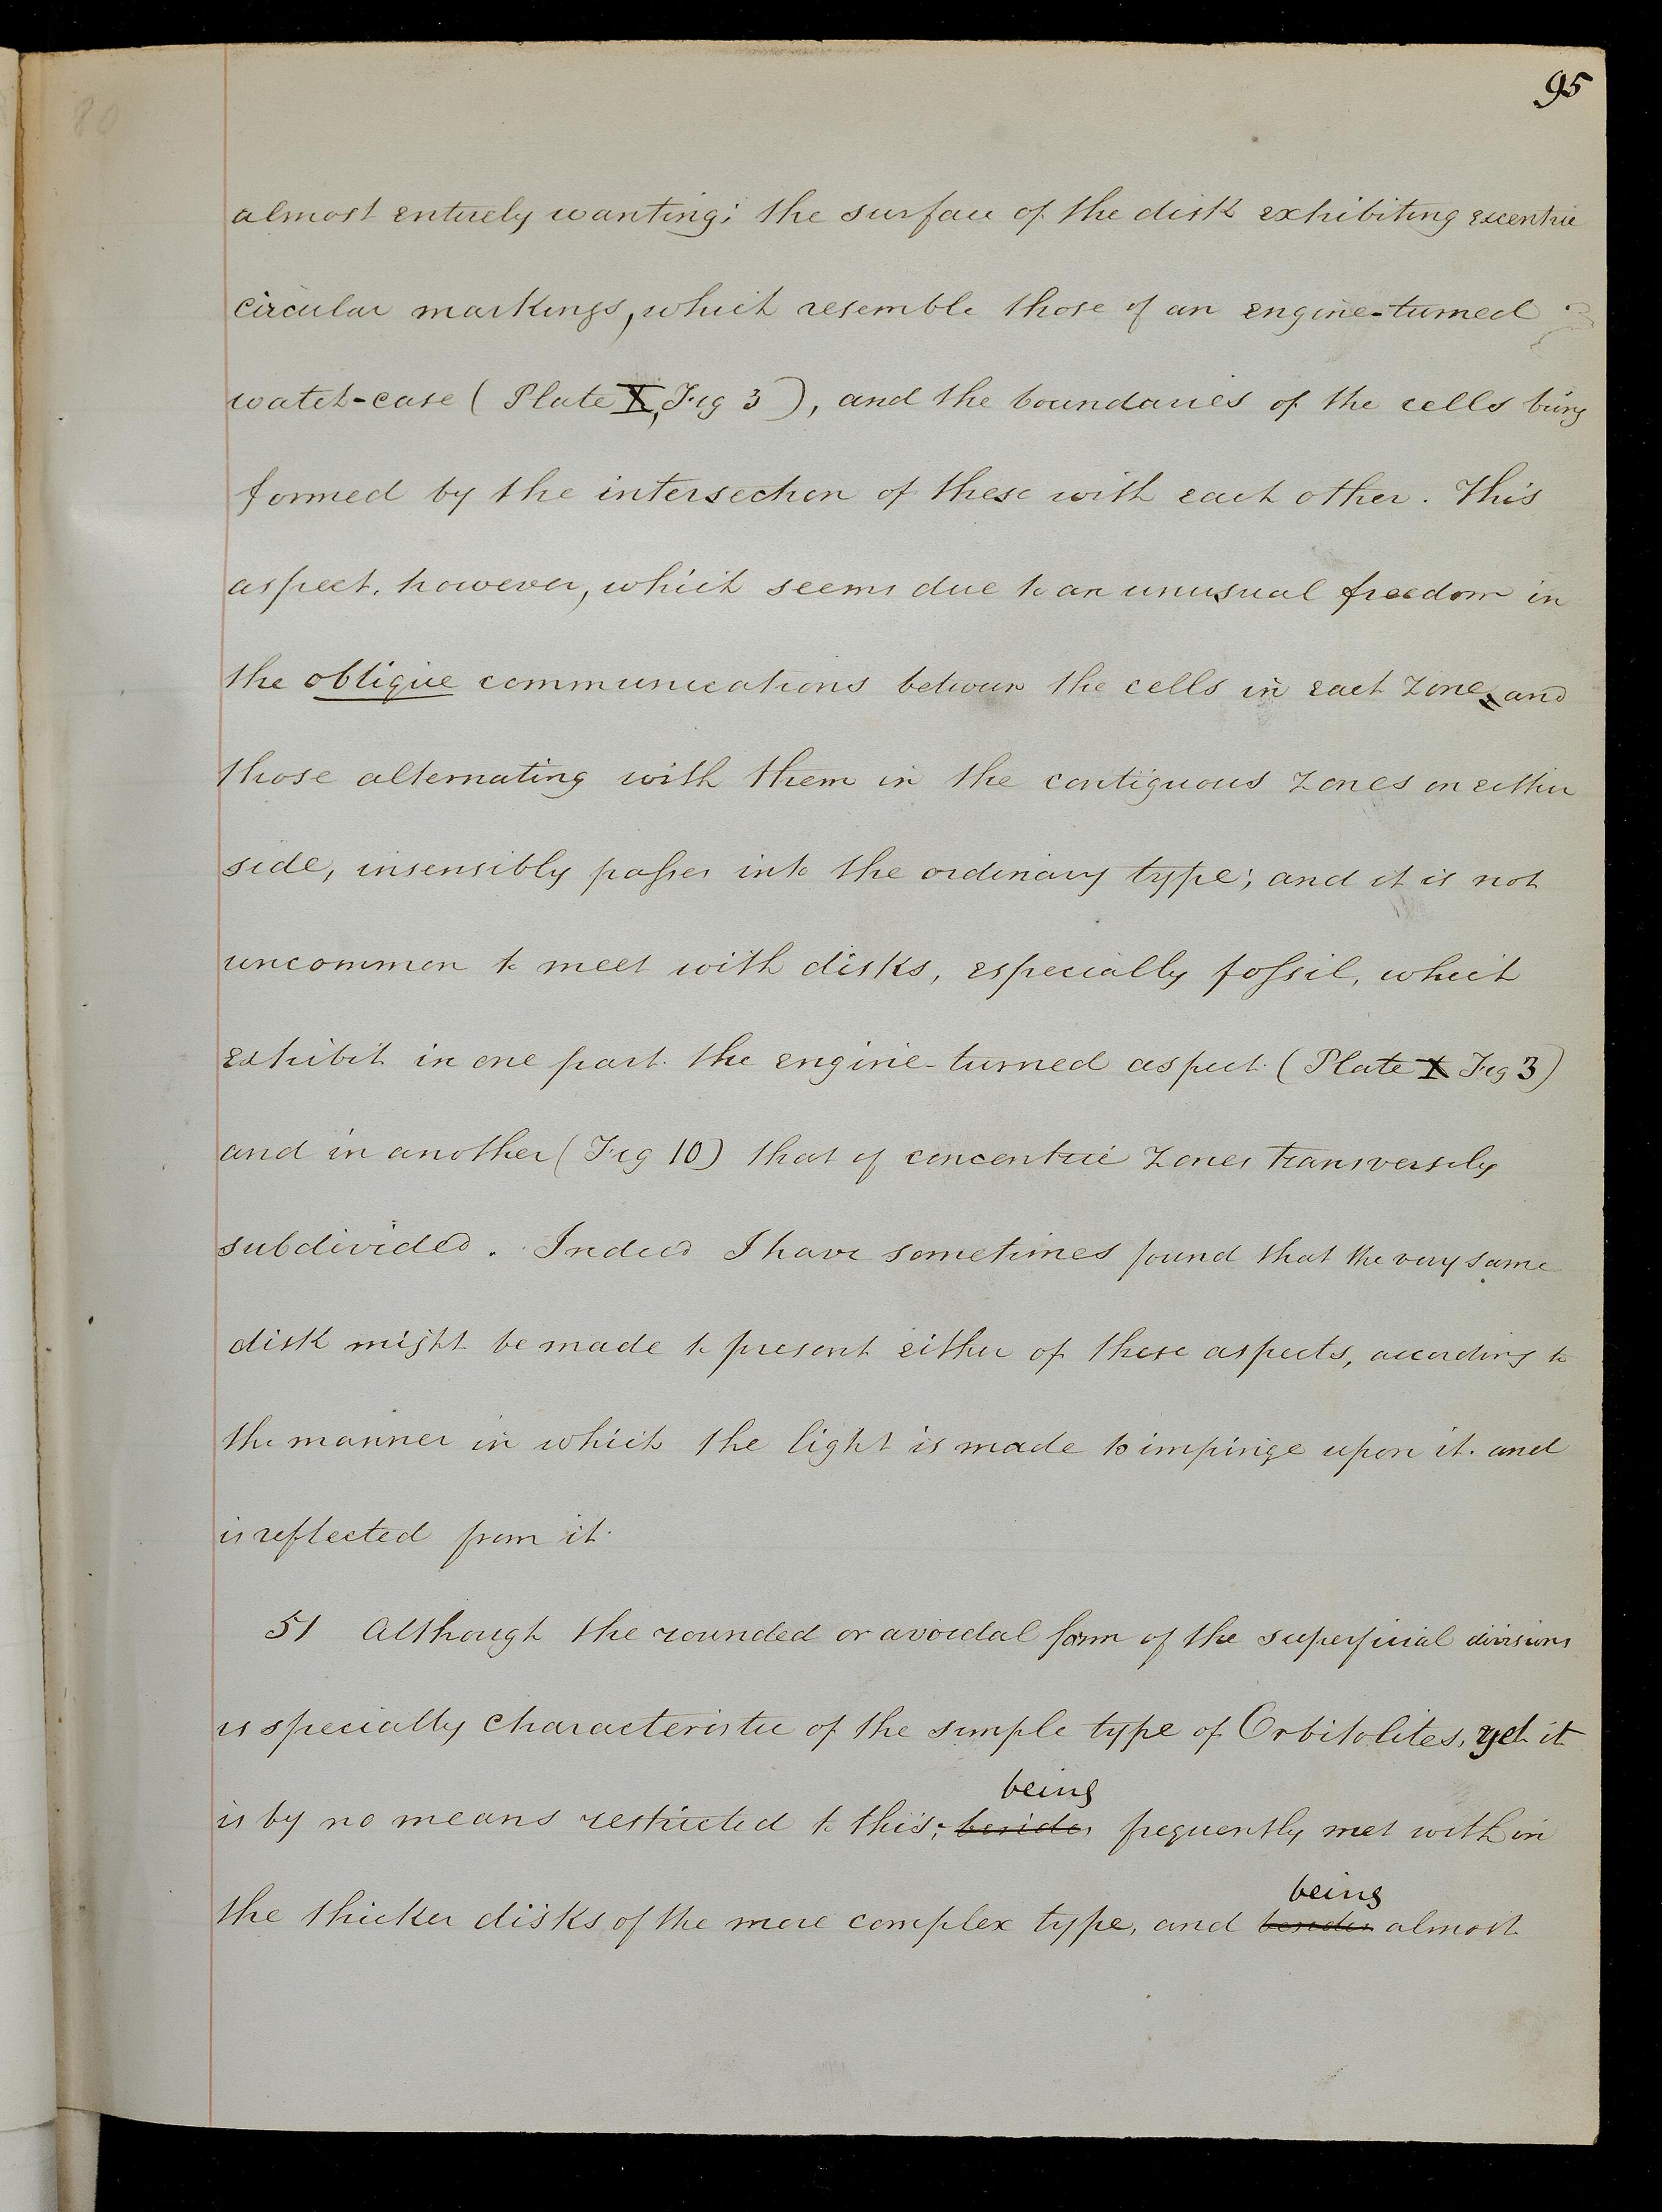 95
80
almost entirely wanting; the surface of the disk exhibiting excentric
circular markings, which resemble those of an engine-turned
watch-case (Plate X, Fig 3), and the boundaries of the cells being
formed by the intersection of these with each other. This
aspect, however, which seems due to an unusual freedom in
the oblique communications between the cells in each zone, and
those alternating with them in the contiguous zones on either
side, insensibly passes into the ordinary type; and it is not
uncommon to meet with disks, especially fossil, which
exhibit in one part the engine-turned aspect (Plate X Fig 3)
and in another (Fig 10) that of concentric zones transversely
subdivided. Indeed I have sometimes found that the very same
disk might be made to present either of these aspects, according to
the manner in which the light is made to impinge upon it. and
is reflected from it.
51 Although the rounded or avoidal form of the superficial divisions
is specially characteristic of the simple type of Orbitolites, yet it
being
is by no means restricted to this; besides frequently met with in
being
the thicker disks of the more complex type, and besides almost